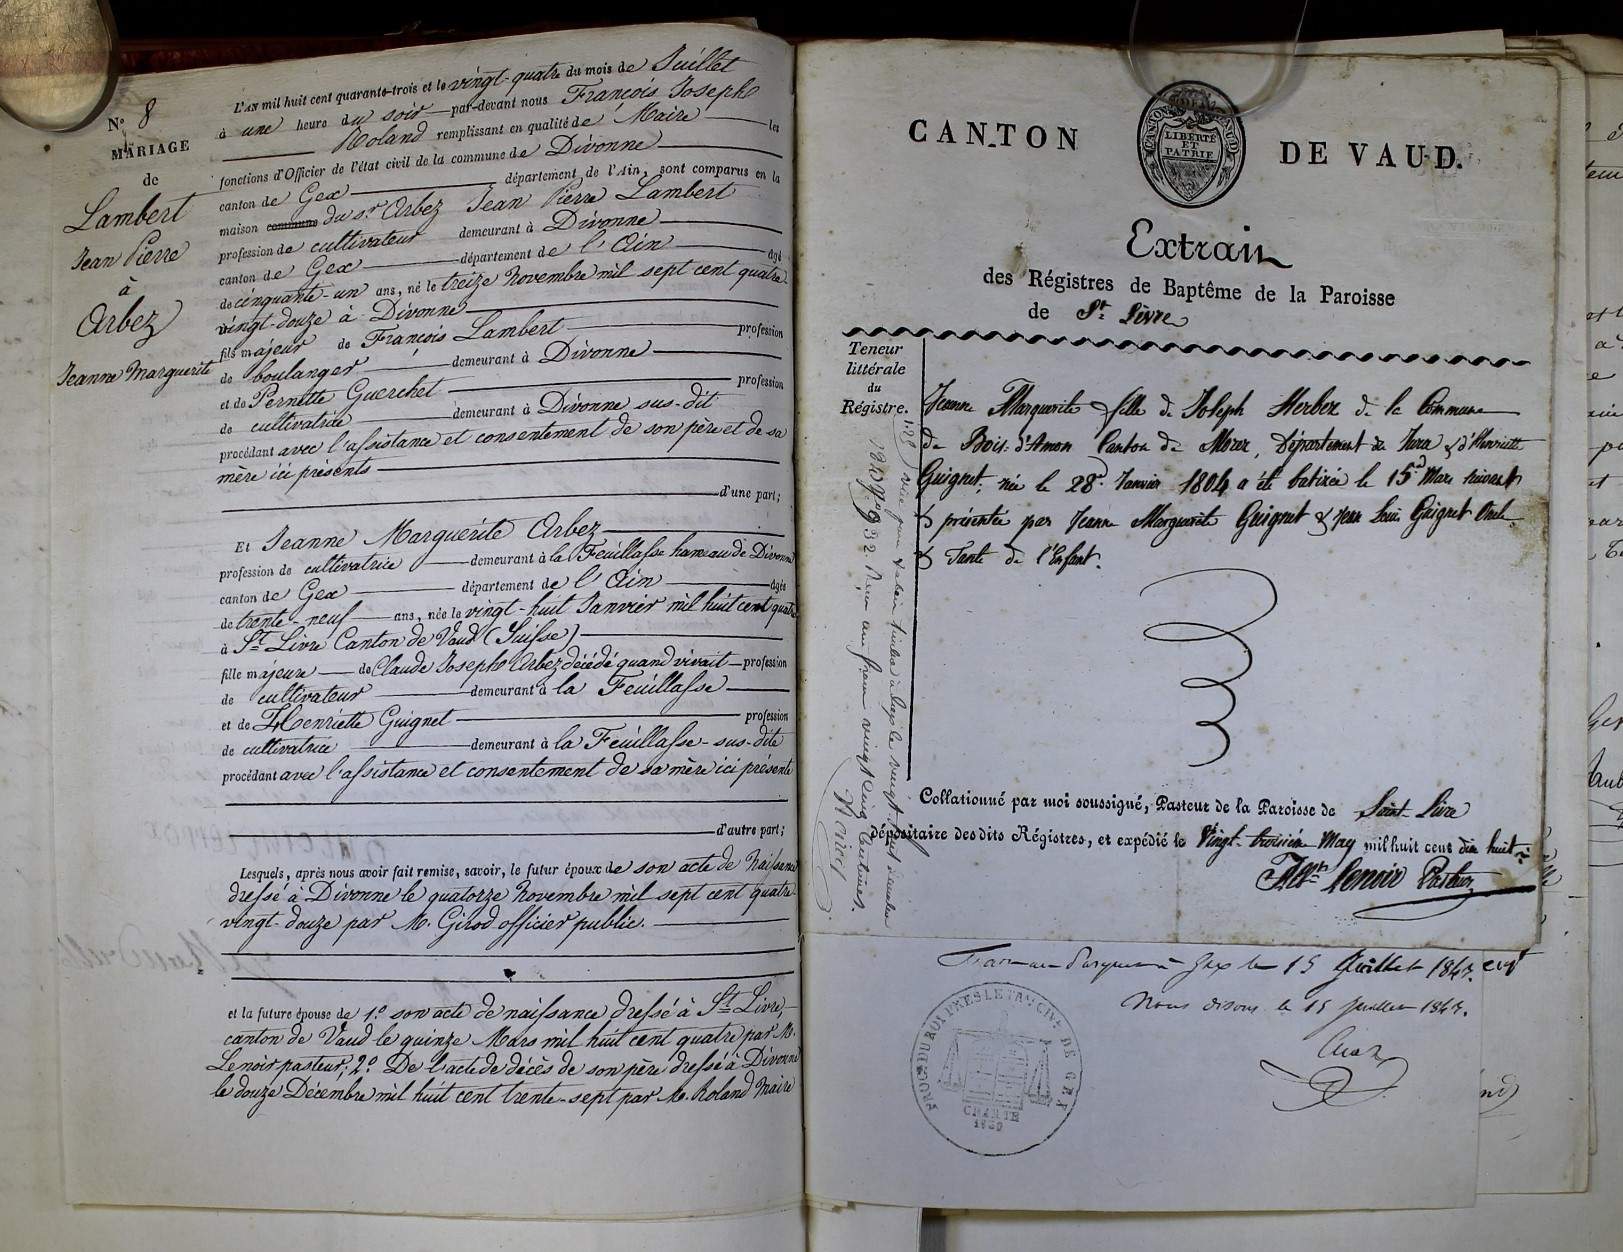 N.º 8
MARIAGE
de
Lambert
Jean Pierre
à
Arbez
Jeanne Marguerite
L'AN mil huit cent quarante-trois et le vingt-quatre du mois de Juillet
à une heure du soir par-devant nous François Joseph
Roland remplissant en qualité de Maire les
fonctions d'Officier de l'état civil de la commune de Divonne
canton de Gex département de l'Ain, sont comparus en la
maison commune du sr. Arbez Jean Pierre Lambert
profession de cultivateur demeurant à Divonne
canton de Gex département de l'Ain agé
de cinquante-un ans, né le treize Novembre mil sept cent quatre-
vingt-douze à Divonne
fils majeur de François Lambert profession
de boulanger demeurant à Divonne
et de Pernette Guerchet profession
de cultivatrice demeurant à Divonne sus-dit
procédant avec l'assistance et consentement de son père et de sa
mère ici présents
d'une part;
Et Jeanne Marguerite Arbez
profession de cultivatrice demeurant à la Feuillasse hameau de Divonne
canton de Gex département de l'Ain agée
de trente-neuf ans, née le vingt-huit Janvier mil huit cent quatre
à St. Livre Canton de Vaud (Suisse)
fille majeure de Claude Joseph Arbez décédé quand vivait profession
de cultivateur demeurant à la Feuillasse
et de Henriette Guignet profession
de cultivatrice demeurant à la Feuillasse-sus-dite
procédant avec l'assistance et consentement de sa mère ici présente
d'autre part;
Lesquels, après nous avoir fait remise, savoir, le futur époux de son acte de Naissance
dressé à Divonne le quatorze Novembre mil sept cent quatre
vingt-douze par M. Girod officier public.
et la future épouse de 1.º son acte de naissance dressé à St. Livre,
canton de Vaud le quinze Mars mil huit cent quatre par M.
Lenoir pasteur; 2.º De l'acte de décès de son père dressé à Divonne
le douze Décembre mil huit cent trente-sept par M. Roland Maire
CANTON DE VAUD.
CANTON DE VAUD
LIBERTÉ
ET
PATRIE
Extrait
des Régistres de Baptême de la Paroisse
de St. Livre
Teneur
littérale
du
Régistre.
Jeanne Marguerite fille de Joseph Herbez de la Commune
de Bois-d'Amon Canton de Morez, Département du Jura & d'Henriette
Guignet, née le 28.e Janvier 1804 a été batisée le 15.e Mars suivant
& présentée par Jeanne Marguerite Guignet & Jean Louis Guignet Oncle
& Tante de l'Enfant.
Collationné par moi soussigné, Pasteur de la Paroisse de Saint-Livre
dépositaire des dits Régistres, et expédié le Vingt-troisième May mil huit cent dix huit
Lenoir Pasteur
Gex le 15 Juillet 1843
Nous disons le 15 Juillet 1843.
PROC. DU ROI PRES LE TRIB. CIV. DE GEX
CHARTE
1830